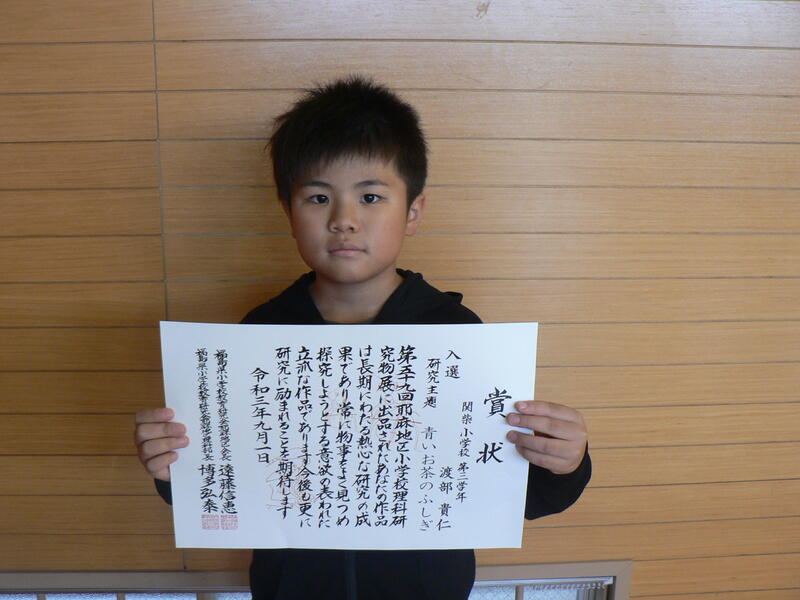 賞状
関柴小学校 第三学年
渡部 貴仁
入選
研究主題 青いお茶のふしぎ
第五十九回耶麻地区小学校理科研
究物展に出品されたあなたの作品
は長期にわたる熱心な研究の成
果であり常に物事をよく見つめ
探究しようとする意欲の表われた
立派な作品であります今後も更に
研究に励まれることを期待します
令和三年九月一日
遠藤信恵
博多弘泰